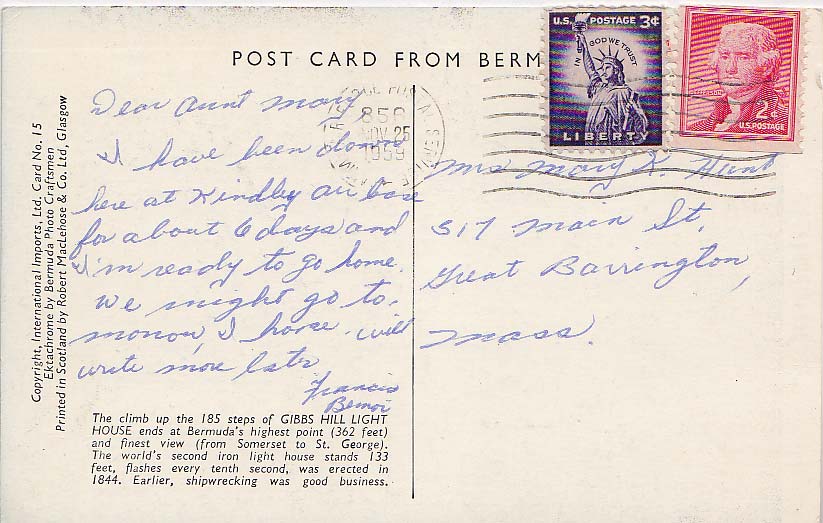 POST CARD FROM BERM
U.S. POSTAGE 3¢
IN GOD WE TRUST
LIBERTY
JEFFERSON
2¢
U.S. POSTAGE
NOV 25
1959
Dear Aunt Mary
I have been down
here at Kindley air base
for about 6 days and
I'm ready to go home.
We might go to
morrow, I hope. will
write more later
Francis
Mrs Mary K. Hunt
317 Main St.
Great Barrington,
Mass.
Copyright, International Imports, Ltd. Card No. 15
Ektachrome by Bermuda Photo Craftsmen
Printed in Scotland by Robert MacLehose & Co. Ltd, Glasgow
The climb up the 185 steps of GIBBS HILL LIGHT
HOUSE ends at Bermuda's highest point (362 feet)
and finest view (from Somerset to St. George).
The world's second iron light house stands 133
feet, flashes every tenth second, was erected in
1844. Earlier, shipwrecking was good business.